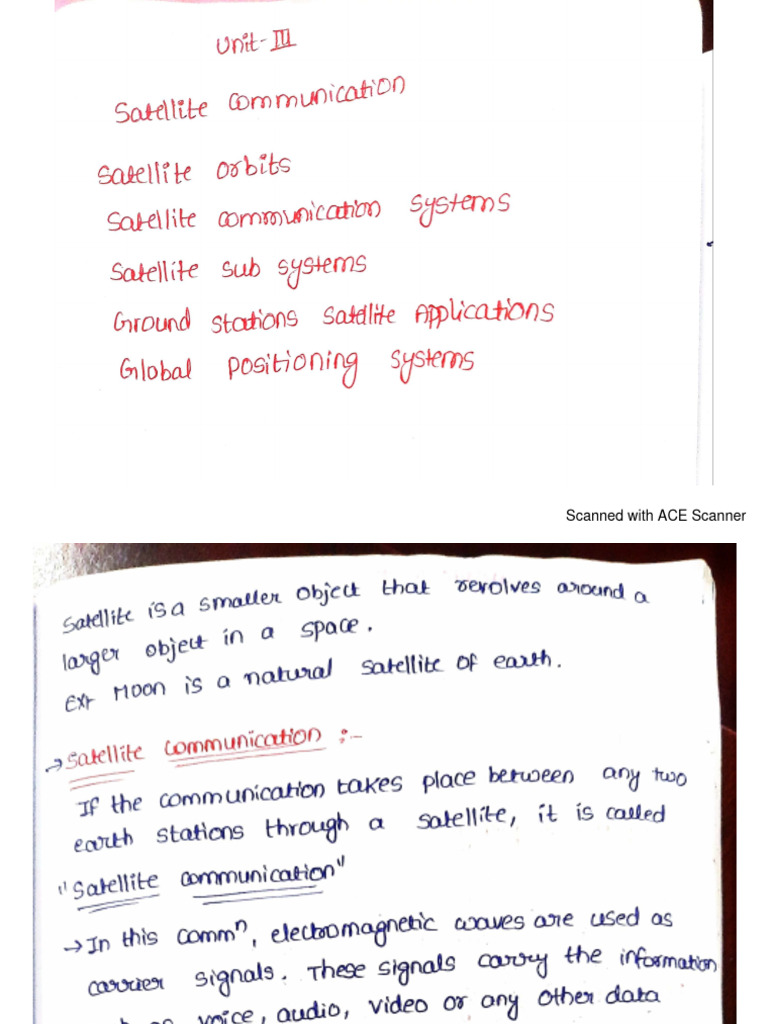 Unit-III
Satellite Communication
Satellite Orbits
Satellite communication Systems
Satellite sub systems
Ground stations Satellite Applications
Global Positioning Systems
Scanned with ACE Scanner
Satellite is a smaller object that revolves around a
larger object in a space.
Ex:- Moon is a natural satellite of earth.
→ Satellite Communication :-
If the communication takes place between any two
earth stations through a satellite, it is called
"Satellite communication"
→ In this commⁿ, electromagnetic waves are used as
carrier signals. These signals carry the information
voice, audio, video or any other data